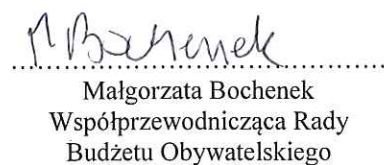 M Bochenek
Małgorzata Bochenek
Współprzewodnicząca Rady
Budżetu Obywatelskiego